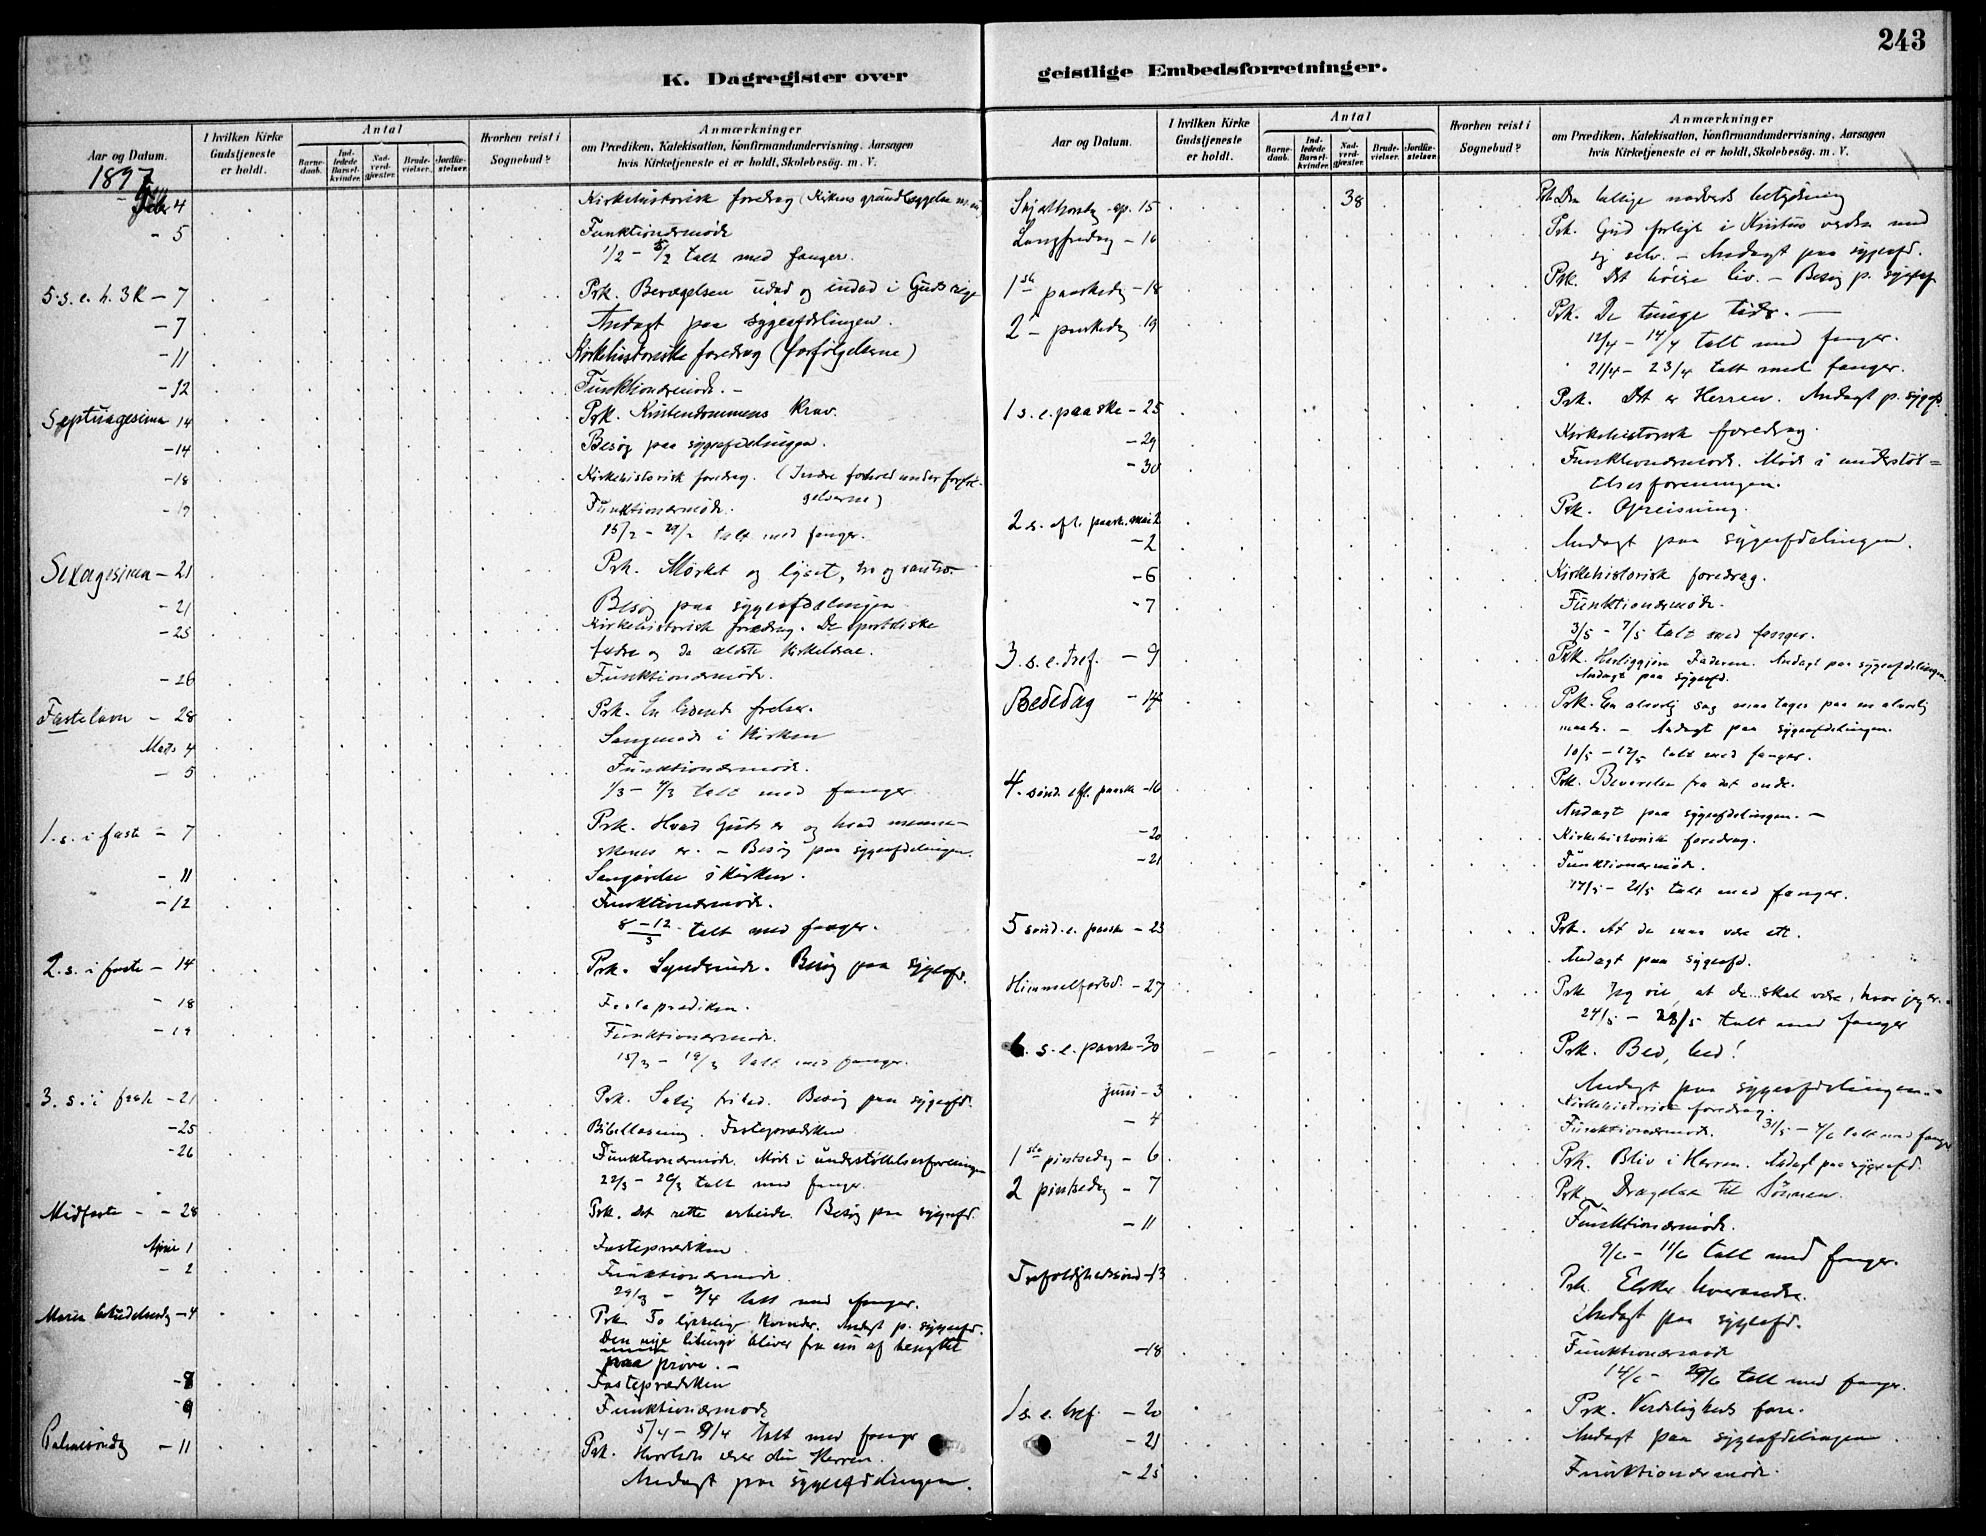 243
K. Dagregister over
geistlige Embedsforretninger.
Aar og Datum.
I hvilken Kirke Gudstjeneste er holdt.
Antal
Barne-daab.
Ind-ledede Barsel-kvinder.
Nad-verd-gjæster.
Brude-vielser.
Jordfæ-stelser.
Hvorhen reist i Sognebud?
Anmærkninger
om Prædiken, Katekisation, Konfirmandundervisning, Aarsagen
hvis Kirketjeneste ei er holdt, Skolebesøg. m. V.
1897
Febr 4 Kirkehistorisk foredrag (Kirkens grundlæggelse
- 5 Funktionærmøde
1/2 - 5/2 talt med fanger.
5. s. e. h. 3 K - 7 Prk. Bevægelsen udad og indad i Guds rige
- 7 Andagt paa sygeafdelingen.
- 11 Kirkehistoriske foredrag (forfølgelserne)
- 12 Funktionærmøde. -
Septuagesima 14 Prk. Kristendommens krav.
- 14 Besøg paa sygeafdelingen.
- 18 Kirkehistorisk foredrag. (Indre forhold under forføl-
gelserne)
- 19 Funktionærmøde.
15/2 - talt med fanger.
Sexagesima - 21 Prk. Mørket og lyset, tro og vantro
- 21 Besøg paa sygeafdelingen
- 25 Kirkehistorisk foredrag. De apostoliske
fædre og de ældste
- 26 Funktionærmøde.
Fastelavn - 28 Prk. En lidende frelser.
Marts 4 Sangmøde i Kirken
- 5 Funktionærmøde.
1/3 - 4/3 talt med fanger
1. s. i faste - 7 Prk. Hvad Guds er og hvad menne-
skenes er. - Besøg paa sygeafdelingen.
- 11 Sangøvelse i Kirken.
- 12 Funktionærmøde.
8 - 12/3 talt med fanger.
2. s. i faste - 14 Prk. Besøg paa sygeafd.
- 18 Fasteprædiken.
- 19 Funktionærmøde.
15/3 - 19/3 talt med fanger.
3. s. i faste - 21 Prk. Salig Besøg paa sygeafd.
- 25 Bibellæsning. Fasteprædiken
- 26 Funktionærmøde. Møde i understøttelsesforeningen
22/3 - 26/3 talt med fanger.
Midfaste - - 28 Prk. Det rette arbeide. Besøg paa sygeafd.
April 1 Fasteprædiken
- 2 Funktionærmøde.
29/3 - 2/4 talt med fanger.
Maria budskabsdag - 4 Prk. To kvinder. Andagt p. sygeafd.
Den nye liturgi bliver fra nu af benyttet
paa prøve. -
- 8 Fasteprædiken
- 9 Funktionærmøde
5/4 - 9/4 talt med fanger
Palmesøndag - 11 Prk. Hvorledes din Herren.
Andagt paa sygeafdelingen.
Aar og Datum.
I hvilken Kirke Gudstjeneste er holdt.
Antal
Barne-daab.
Ind-ledede Barsel-kvinder.
Nad-verd-gjæster.
Brude-vielser.
Jordfæ-stelser.
Hvorhen reist i Sognebud?
Anmærkninger
om Prædiken, Katekisation, Konfirmandundervisning, Aarsagen
hvis Kirketjeneste ei er holdt, Skolebesög. m. V.
Skjærthorsdag ap. 15 38 Prk. Den hellige nadverds betydning
Langfredag - 16 Prk. Gud forligte i Kristus verden med
sig selv. - Andagt paa sygeafd.
1ste paaskedag - 18 Prk. Det høiere liv. - Besøg p. sygeaf
2 - paaskedag - 19 Prk. De tunge tider. -
12/4 - 14/4 talt med fanger.
21/4 - 23/4 talt med fanger.
1 s. e. paaske - 25 Prk. Det er Herren. Andagt p. sygeafd
- 29 Kirkehistorisk foredrag.
- 30 Funktionærmøde. Møde i understøt=
telsesforeningen.
2 s. eft. paaske. mai 2 Prk. Opreisning.
- 2 Andagt paa sygeafdelingen.
- 6 Kirkehistorisk foredrag.
- 7 Funktionærmøde.
3/5 - 7/5 talt med fanger.
3. s. e. - 9 Prk. Faderen. Andagt paa sygeafdelingen
Andagt paa sygeafd.
Bededag - 14 Prk. En alvorlig sag maa tages paa en alvorlig
maade. - Andagt paa sygeafdelingen.
10/5 - 12/5 talt med fanger.
4. sønd. eft. paaske - 16 Prk. Bevarelse fra det onde.
Andagt paa sygeafdelingen. -
- 20 Kirkehistorisk foredrag.
- 21 Funktionærmøde.
17/5 - 21/5 talt med fanger.
5 sønd. e. paaske - 23 Prk. At de maa være ett.
Andagt paa sygeafd.
Himmelfartsd. - 27 Prk Jeg vil, at de skal være, hvor jeg er.
24/5 - 28/5 talt med fanger
6. s. e. paaske - 30 Prk. Bed, bed!
Andagt paa sygeafdelingen. -
juni - 3 Kirkehistorisk foredrag.
- 4 Funktionærmøde. 31/5 - 4/6 talt med fanger
1ste pintsedag - 6 Prk. Bliv i Herren. Andagt paa sygeafd.
2 pintsedag - 7 Prk. Dragelse til Sønnen.
- 11 Funktionærmøde.
9/6 - 11/6 talt med fanger.
Trefoldighedssønd - 13 Prk. Elsker hverandre.
Andagt paa sygeafd.
- 18 Funktionærmøde
14/6 - talt med fanger.
1 s. e. tref. - 20 Prk. Verdslighedens fare.
- 21 Andagt paa sygeafdelingen
- 25 Funktionærmøde.